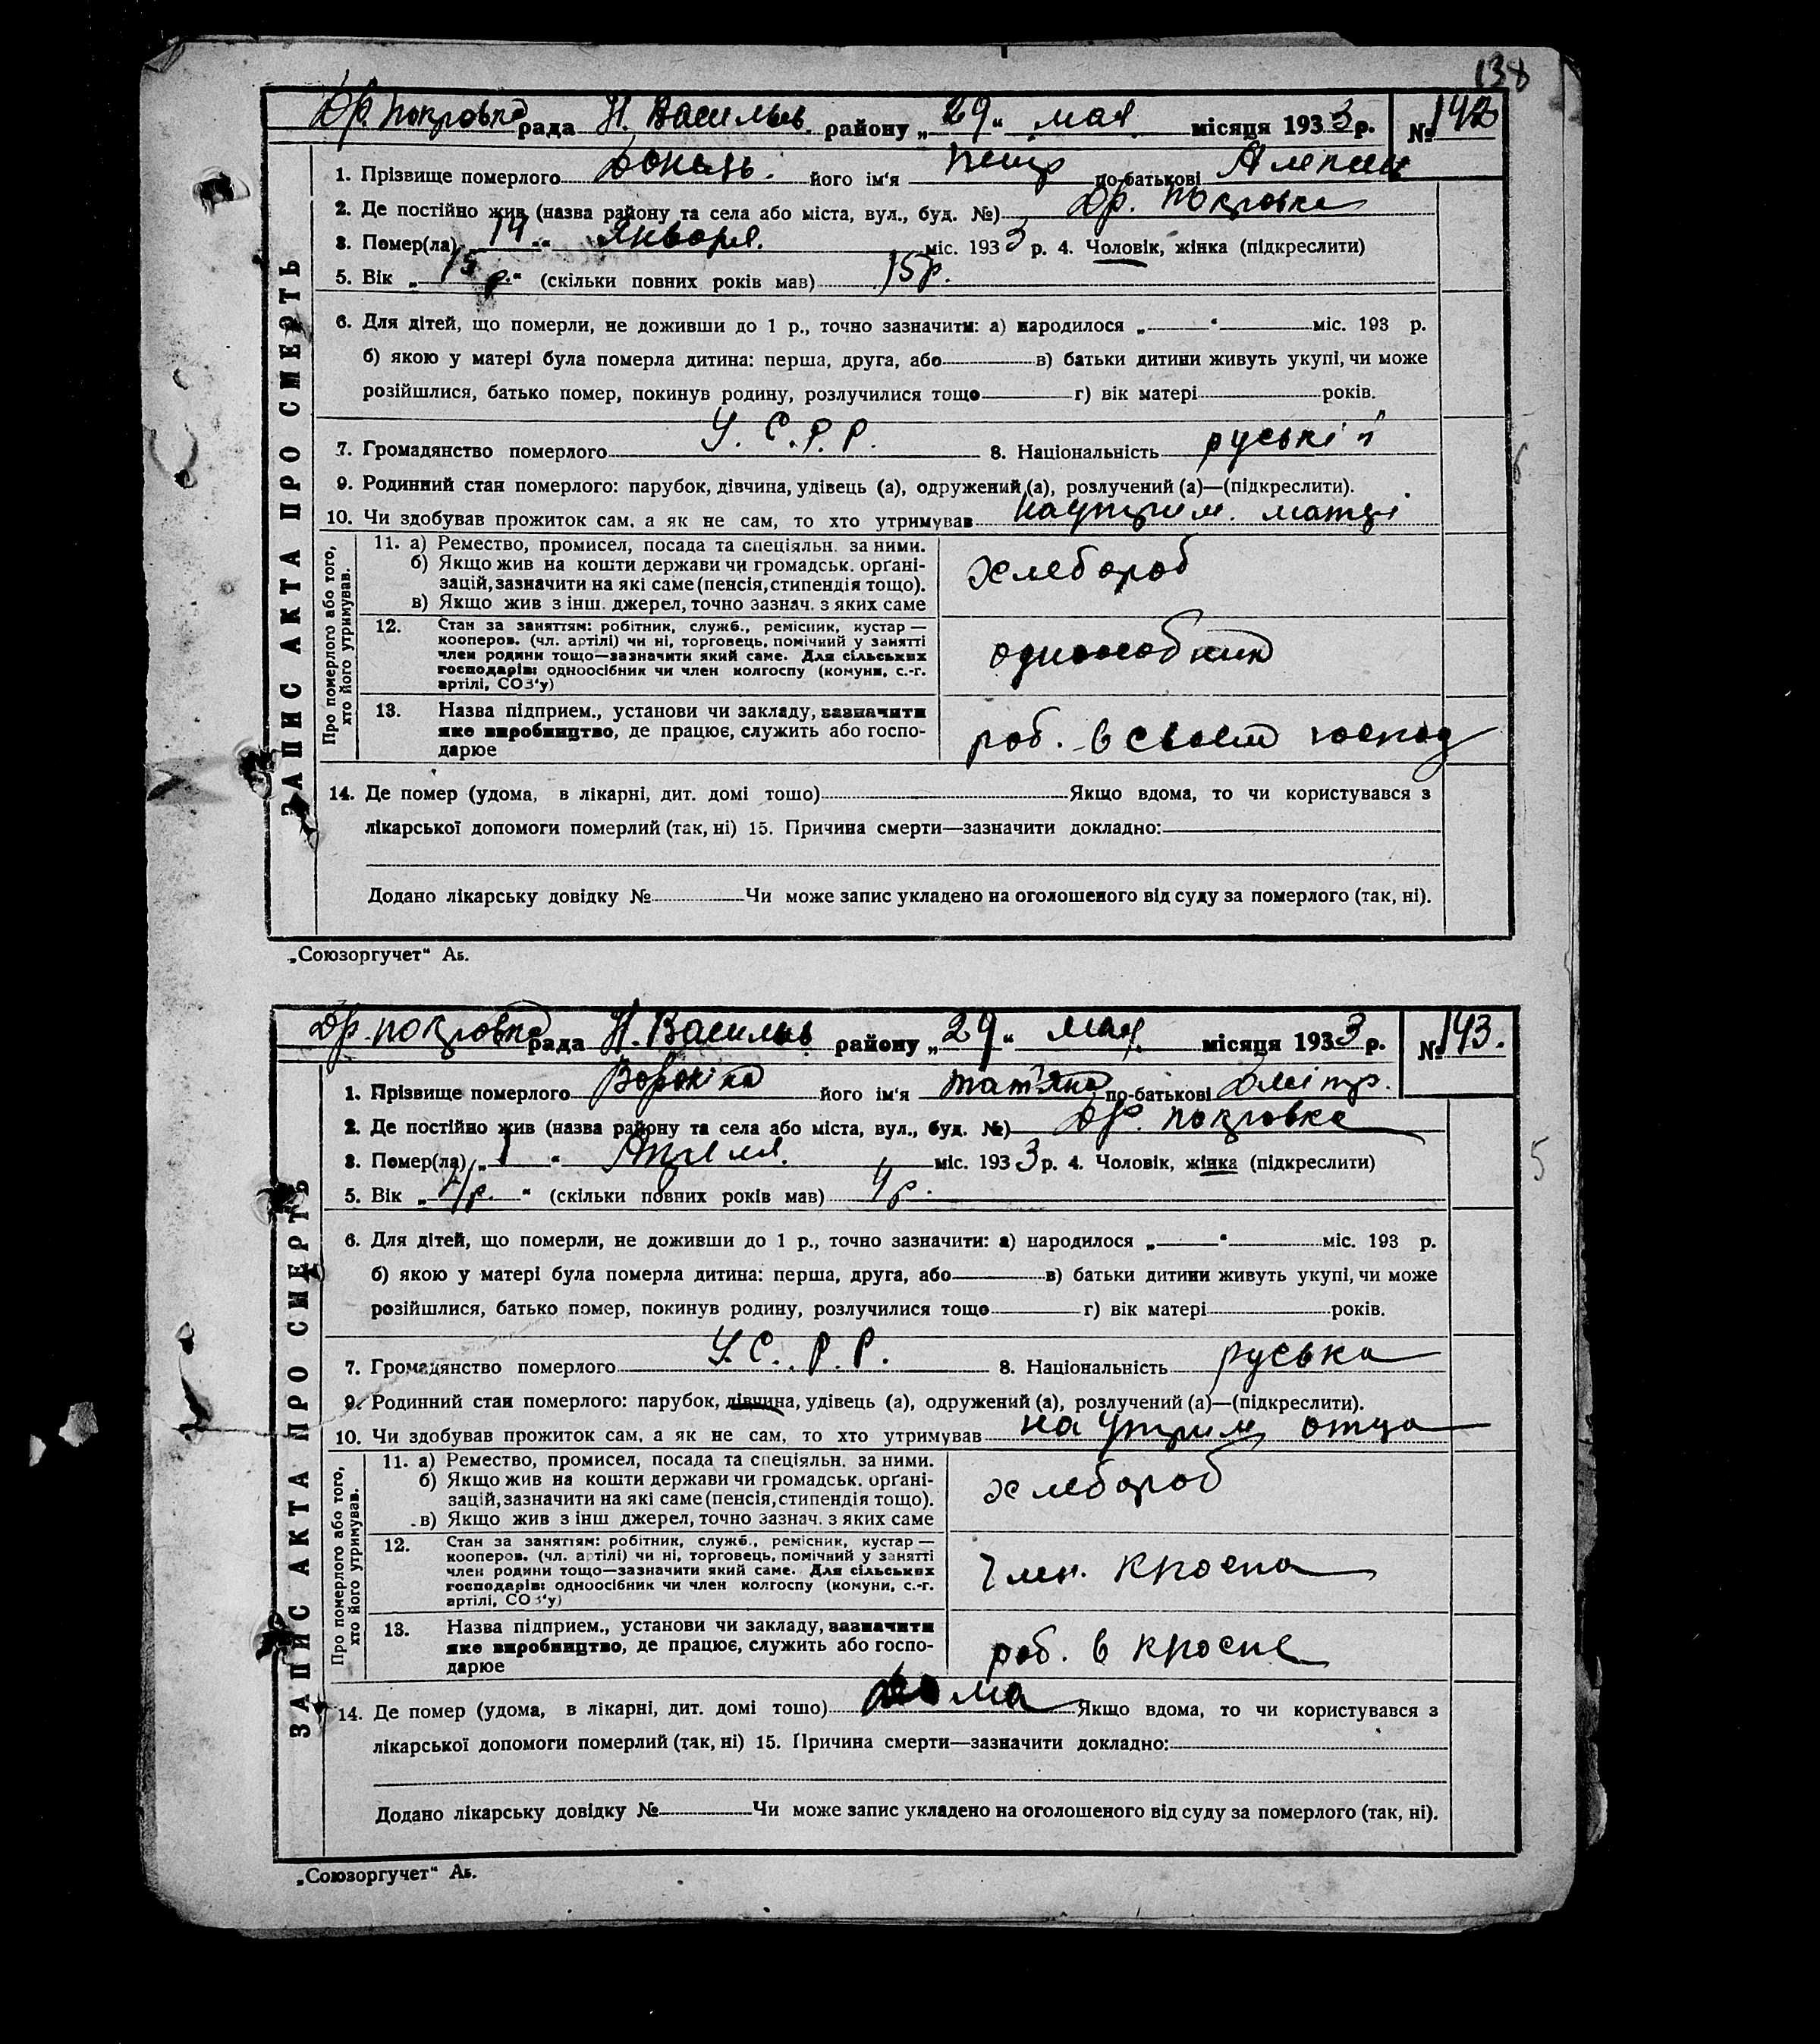 138
Др. покровка рада Н. Васильев. району „29“ мая місяця 1933 р. № 142
1. Прізвище померлого його ім‘я Петр по-батькові
2. Де постійно жив (назва району та села або міста, вул., буд. №) Др. Покровка
3. Помер(ла) „14“ Января. міс. 1933 р. 4. Чоловік, жінка (підкреслити)
5. Вік „15 р.“ (скільки повних років мав) 15р.
6. Для дітей, що померли, не доживши до 1 р., точно зазначити: а) народилося „ “ міс. 193 р.
б) якою у матері була померла дитина: перша, друга, або в) батьки дитини живуть укупі, чи може
розійшлися, батько помер, покинув родину, розлучилися тощо г) вік матері років.
7. Громадянство померлого У. С. Р. Р. 8. Національність руські й
9. Родинний стан померлого: парубок, дівчина, удівець (а), одружений (а), розлучений (а)—(підкреслити).
10. Чи здобував прожиток сам, а як не сам, то хто утримував на утрим. матері
11. а) Ремество, промисел, посада та спеціяльн. за ними.
б) Якщо жив на кошти держави чи громадськ. орґані-
зацій, зазначити на які саме (пенсія, стипендія тощо).
в) Якщо жив з інш. джерел, точно зазнач. з яких саме
хлебороб
12. Стан за заняттям: робітник, служб., ремісник, кустар —
кооперов. (чл. артілі) чи ні, торговець, помічний у занятті
член родини тощо—зазначити який саме. Для сільських
господарів: одноосібник чи член колгоспу (комуни, с.-г.
артілі, СОЗ‘у)
одноособник
13. Назва підприєм., установи чи закладу, зазначити
яке виробництво, де працює, служить або госпо-
дарює
роб. в своем господ
Про померлого або того,
хто його утримував.
14. Де помер (удома, в лікарні, дит. домі тошо) Якщо вдома, то чи користувався з
лікарської допомоги померлий (так, ні) 15. Причина смерти—зазначити докладно:
Додано лікарську довідку № Чи може запис укладено на оголошеного від суду за померлого (так, ні).
ЗАПИС АКТА ПРО СМЕРТЬ
„Союзоргучет“ Аб.
Др. покровка рада Н. Васильев району „29“ мая місяця 1933 р. № 143.
1. Прізвище померлого Вороніна його ім‘я Татьяна по-батькові Дмітр.
2. Де постійно жив (назва району та села або міста, вул., буд. №) Др. покровка
3. Помер(ла) „1“ Апреля. міс. 1933 р. 4. Чоловік, жінка (підкреслити)
5. Вік „4р.“ (скільки повних років мав) 4р.
6. Для дітей, що померли, не доживши до 1 р., точно зазначити: а) народилося „ “ міс. 193 р.
б) якою у матері була померла дитина: перша, друга, або в) батьки дитини живуть укупі, чи може
розійшлися, батько помер, покинув родину, розлучилися тощо г) вік матері років.
7. Громадянство померлого У. С. Р. Р. 8. Національність руська
9. Родинний стан померлого: парубок, дівчина, удівець (а), одружений (а), розлучений (а)—(підкреслити).
10. Чи здобував прожиток сам, а як не сам, то хто утримував на утрим отца
11. а) Ремество, промисел, посада та спеціяльн. за ними.
б) Якщо жив на кошти держави чи громадськ. орґані-
зацій, зазначити на які саме (пенсія, стипендія тощо).
в) Якщо жив з інш джерел, точно зазнач. з яких саме
хлебороб
12. Стан за заняттям: робітник, служб., ремісник, кустар —
кооперов. (чл. артілі) чи ні, торговець, помічний у занятті
член родини тощо—зазначити який саме. Для сільських
господарів: одноосібник чи член колгоспу (комуни, с.-г.
артілі, СОЗ‘у)
член.
13. Назва підприєм., установи чи закладу, зазначити
яке виробництво, де працює, служить або госпо-
дарює
роб. в
Про померлого або того,
хто його утримував.
14. Де помер (удома, в лікарні, дит. домі тошо) дома Якщо вдома, то чи користувався з
лікарської допомоги померлий (так, ні) 15. Причина смерти—зазначити докладно:
Додано лікарську довідку № Чи може запис укладено на оголошеного від суду за померлого (так, ні).
ЗАПИС АКТА ПРО СМЕРТЬ
5
„Союзоргучет“ Аб.